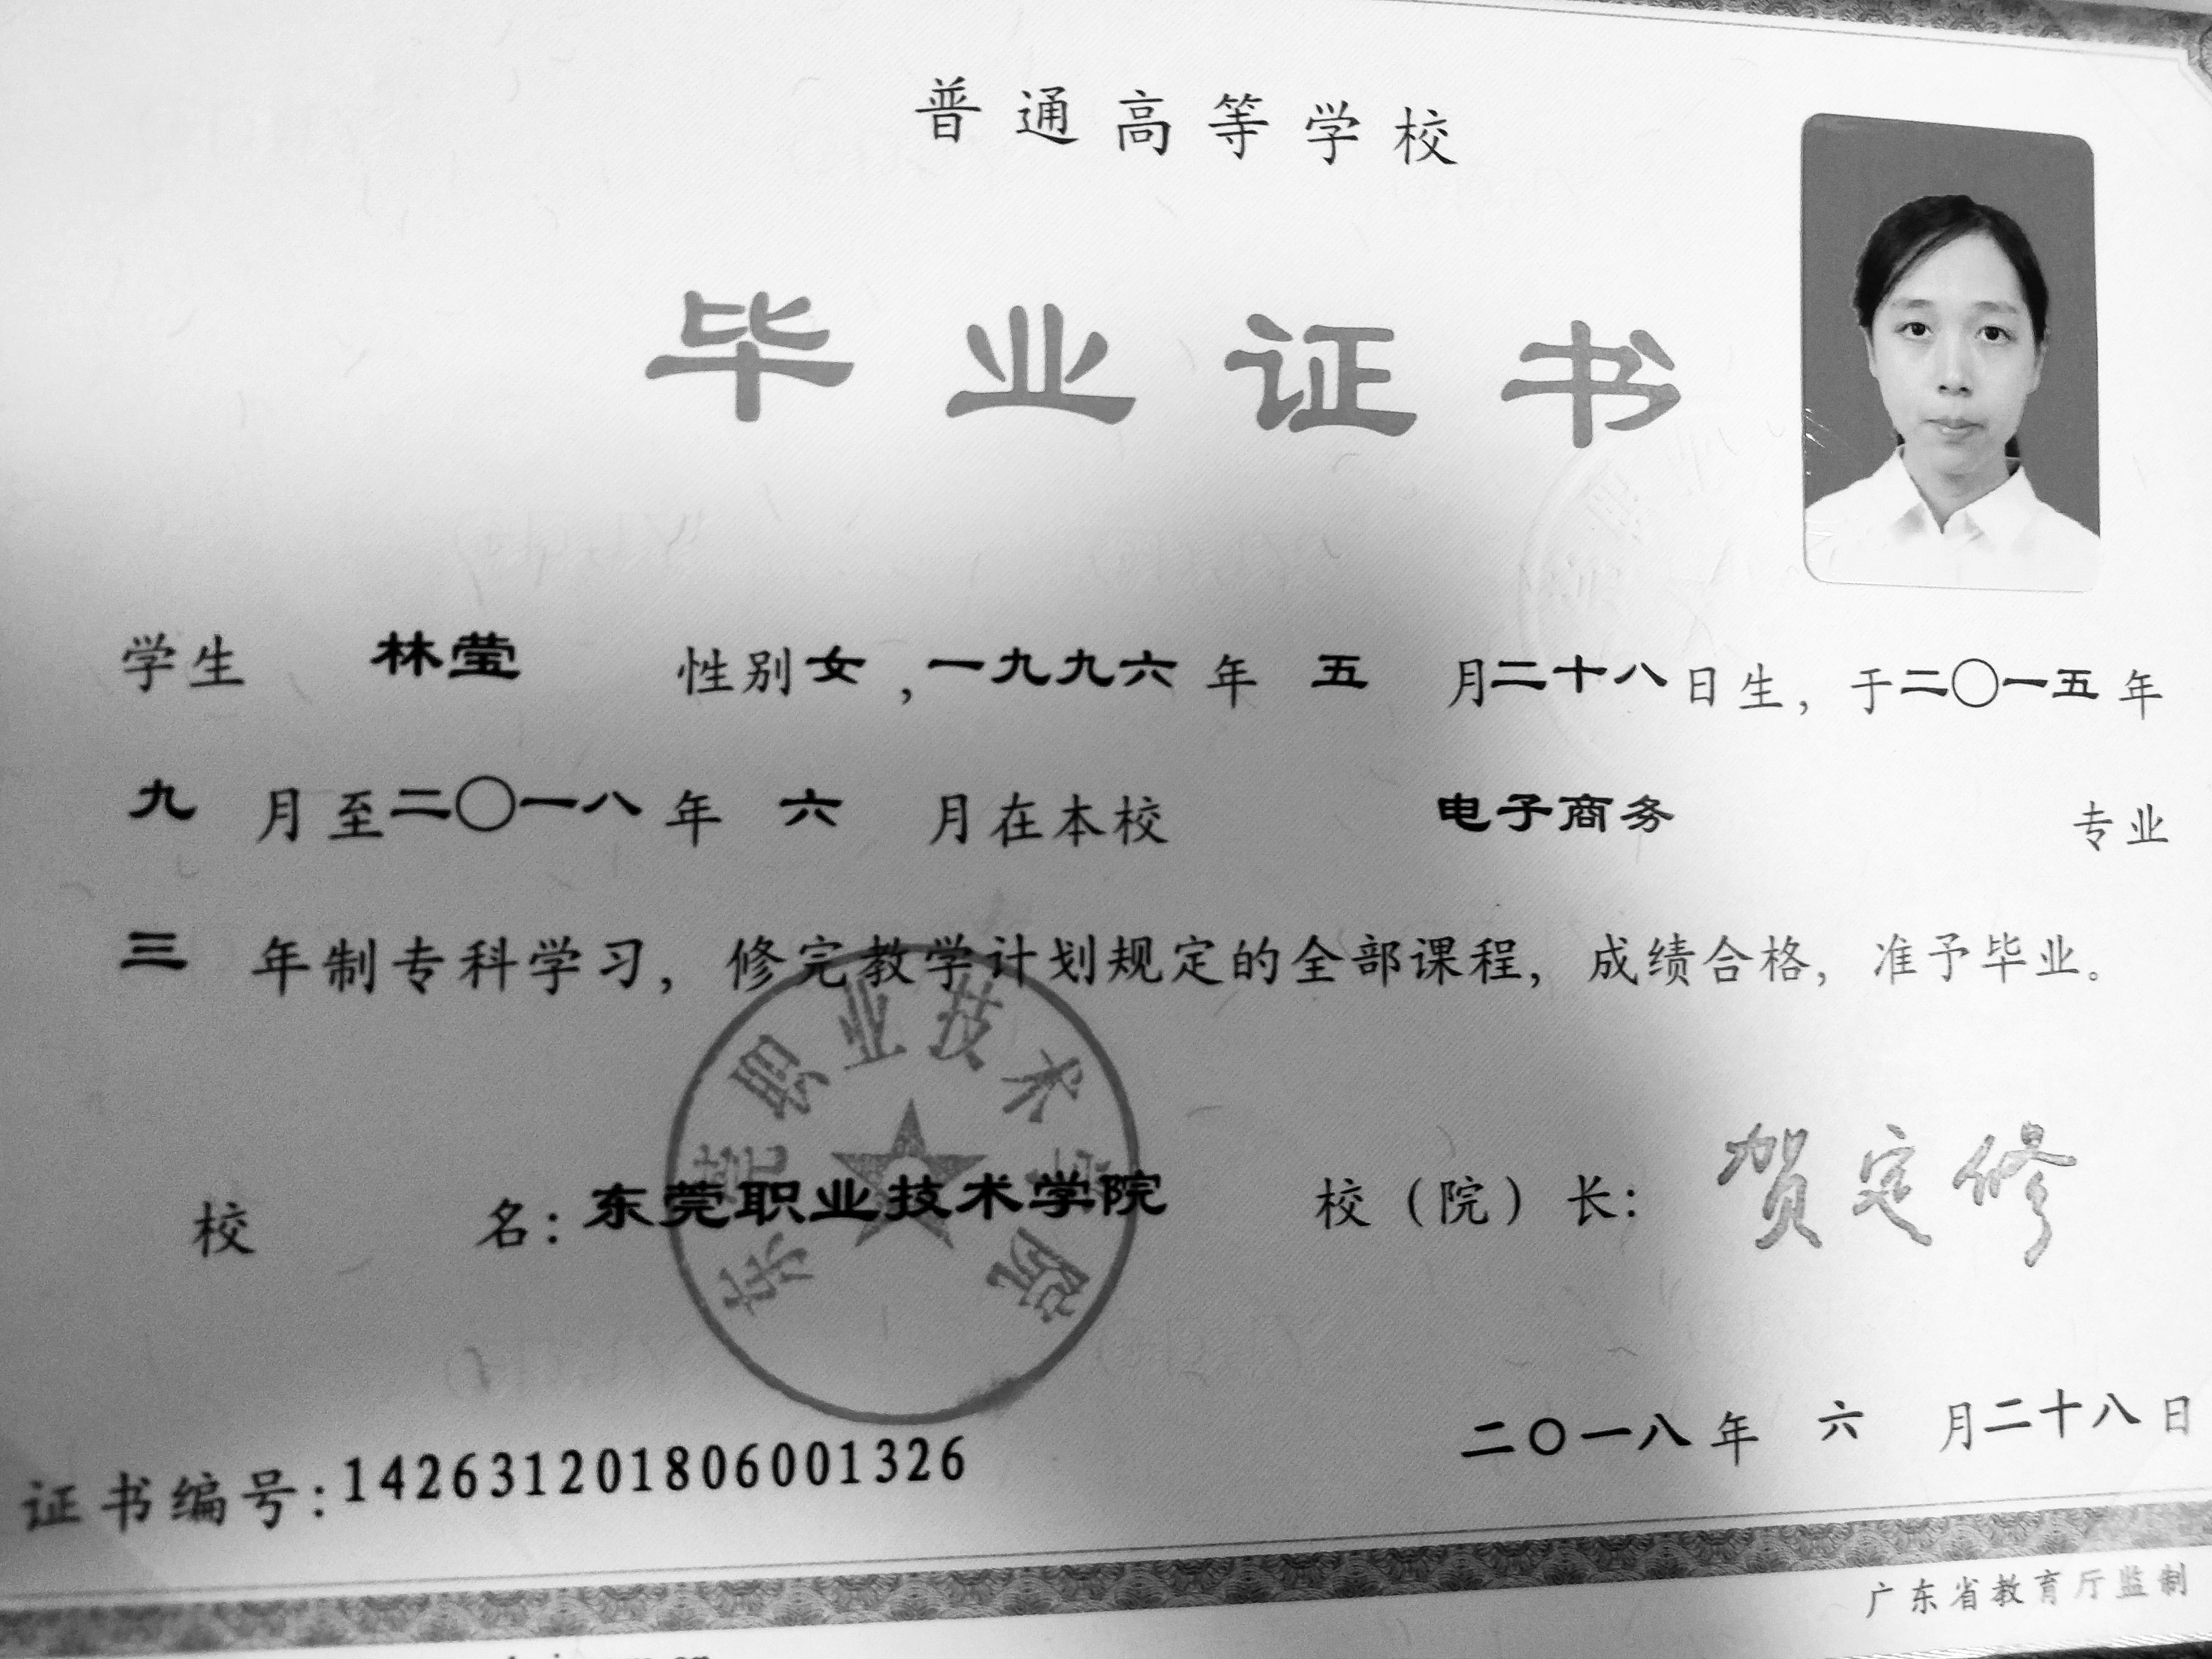 普通高等学校
毕业证书
学生 林莹 性别女,一九九六年 五 月二十八日生，于二〇一五年
九 月至二〇一八年 六 月在本校 电子商务 专业
三 年制专科学习，修完教学计划规定的全部课程，成绩合格，准予毕业。
东莞职业技术学院
校 名：东莞职业技术学院 校（院）长：贺定修
二〇一八年 六 月二十八日
证书编号:142631201806001326
广东省教育厅监制